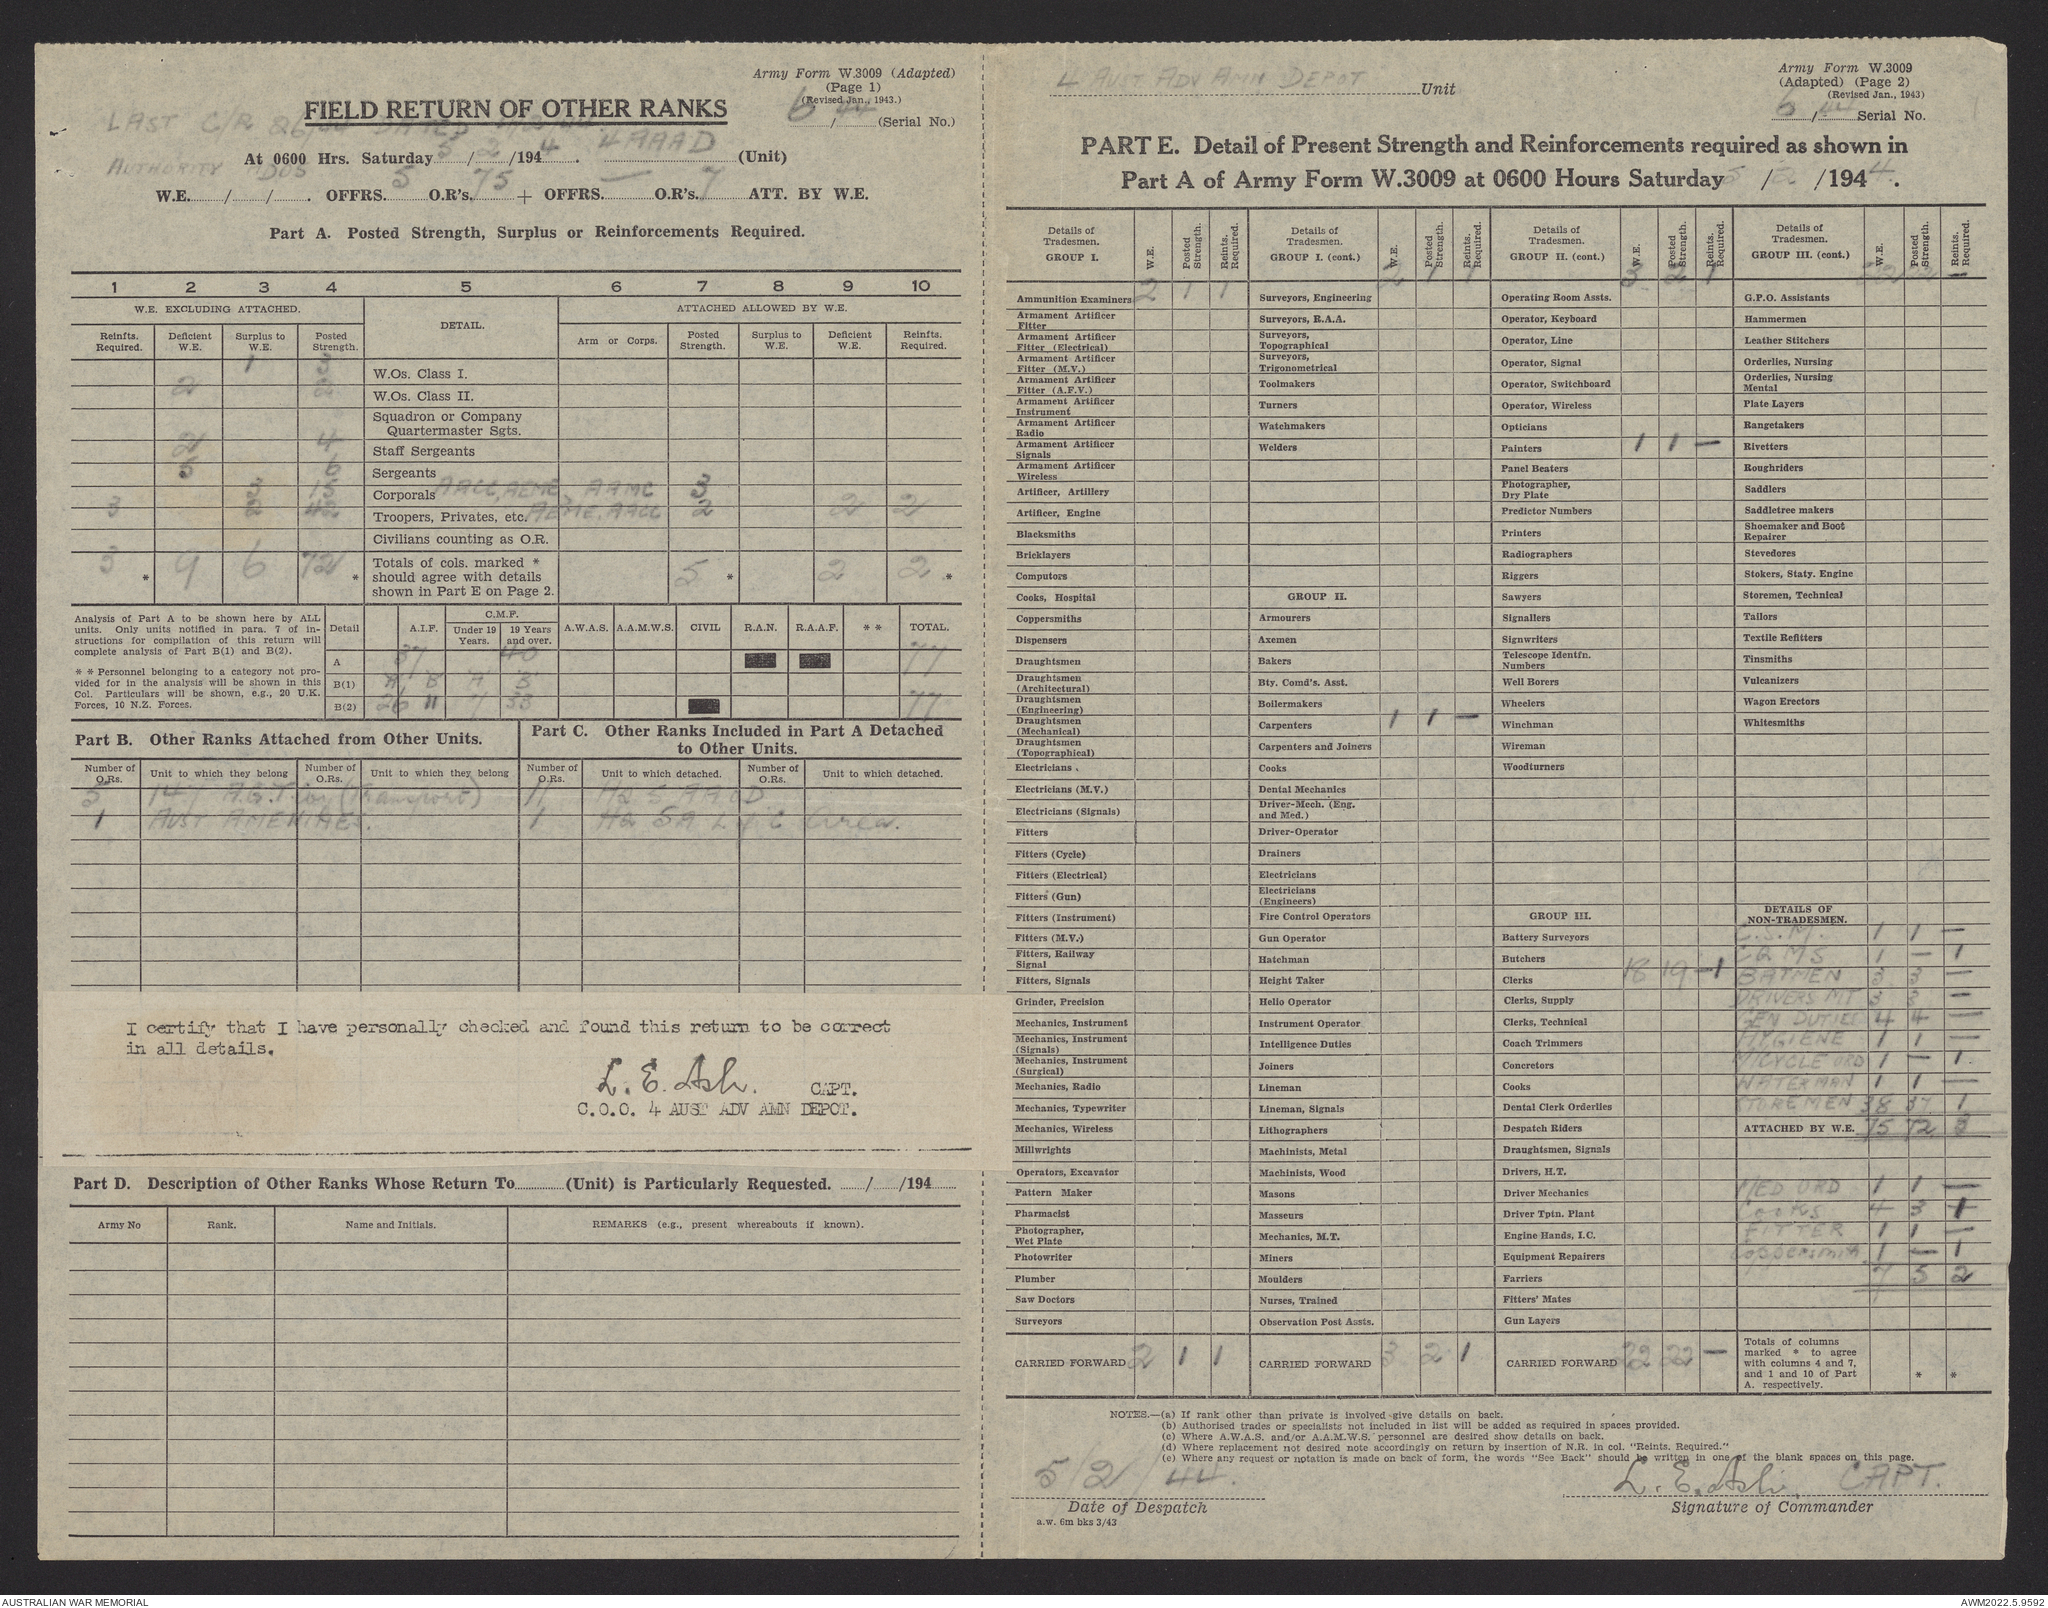 Army Form W.3009 (Adapted)
(Page 1)
(Revised Jan., 1943.)
6/44 (Serial No.)
FIELD RETURN OF OTHER RANKS
LAST C/R
AUTHORITY ADOS
At 0600 Hrs. Saturday 5/2/1944. 4 AAAD (Unit)
W.E. / / . OFFRS. 5 O.R's. 75 + OFFRS. — O.R's. 7 ATT. BY W.E.
Part A. Posted Strength, Surplus or Reinforcements Required.
1 2 3 4 5 6 7 8 9 10
W.E. EXCLUDING ATTACHED. DETAIL. ATTACHED ALLOWED BY W.E.
Reinfts. Required. Deficient W.E. Surplus to W.E. Posted Strength. Arm or Corps. Posted Strength. Surplus to W.E. Deficient W.E. Reinfts. Required.
1 W.Os. Class I.
2 W.Os. Class II.
Squadron or Company
Quartermaster Sgts.
2 4 Staff Sergeants
5 6 Sergeants
3 Corporals AACC, AEME, AAMC 3
3 Troopers, Privates, etc. AEME, AACC 2 2 2
Civilians counting as O.R.
3 * 9 6 72 * Totals of cols. marked * should agree with details shown in Part E on Page 2. 5 * 2 2 *
Analysis of Part A to be shown here by ALL
units. Only units notified in para. 7 of in-
structions for compilation of this return will
complete analysis of Part B(1) and B(2).
* * Personnel belonging to a category not pro-
vided for in the analysis will be shown in this
Col. Particulars will be shown, e.g., 20 U.K.
Forces, 10 N.Z. Forces.
Detail A.I.F. C.M.F. Under 19 Years. 19 Years and over. A.W.A.S. A.A.M.W.S. CIVIL R.A.N. R.A.A.F. * * TOTAL.
A 37 40 77
B(1) A B A B
B(2) 26 11 7 33 77
Part B. Other Ranks Attached from Other Units.
Part C. Other Ranks Included in Part A Detached
to Other Units.
Number of O.Rs. Unit to which they belong Number of O.Rs. Unit to which they belong Number of O.Rs. Unit to which detached. Number of O.Rs. Unit to which detached.
5 147 A.G.T. Coy (Transport) 11 HQ 5 AAOD
1 AUST AMENITIES. 1 HQ 5A L of C Area.
I certify that I have personally checked and found this return to be correct
in all details.
L. E. Ash. CAPT.
C.O.O. 4 AUST ADV AMN DEPOT.
Part D. Description of Other Ranks Whose Return To (Unit) is Particularly Requested. / /194
Army No Rank. Name and Initials. REMARKS (e.g., present whereabouts if known).
4 AUST ADV AMN DEPOT Unit
Army Form W.3009
(Adapted) (Page 2)
(Revised Jan., 1943)
6/44 Serial No.
PART E. Detail of Present Strength and Reinforcements required as shown in
Part A of Army Form W.3009 at 0600 Hours Saturday 5/2/1944.
Details of Tradesmen. GROUP I. W.E. Posted Strength. Reints. Required.
Ammunition Examiners 2 1 1
Armament Artificer Fitter
Armament Artificer Fitter (Electrical)
Armament Artificer Fitter (M.V.)
Armament Artificer Fitter (A.F.V.)
Armament Artificer Instrument
Armament Artificer Radio
Armament Artificer Signals
Armament Artificer Wireless
Artificer, Artillery
Artificer, Engine
Blacksmiths
Bricklayers
Computors
Cooks, Hospital
Coppersmiths
Dispensers
Draughtsmen
Draughtsmen (Architectural)
Draughtsmen (Engineering)
Draughtsmen (Mechanical)
Draughtsmen (Topographical)
Electricians
Electricians (M.V.)
Electricians (Signals)
Fitters
Fitters (Cycle)
Fitters (Electrical)
Fitters (Gun)
Fitters (Instrument)
Fitters (M.V.)
Fitters, Railway Signal
Fitters, Signals
Grinder, Precision
Mechanics, Instrument
Mechanics, Instrument (Signals)
Mechanics, Instrument (Surgical)
Mechanics, Radio
Mechanics, Typewriter
Mechanics, Wireless
Millwrights
Operators, Excavator
Pattern Maker
Pharmacist
Photographer, Wet Plate
Photowriter
Plumber
Saw Doctors
Surveyors
CARRIED FORWARD 2 1 1
Details of Tradesmen. GROUP I. (cont.) W.E. Posted Strength. Reints. Required.
2 1 1
Surveyors, Engineering
Surveyors, R.A.A.
Surveyors, Topographical
Surveyors, Trigonometrical
Toolmakers
Turners
Watchmakers
Welders
GROUP II.
Armourers
Axemen
Bakers
Bty. Comd's. Asst.
Boilermakers
Carpenters 1 1 —
Carpenters and Joiners
Cooks
Dental Mechanics
Driver-Mech. (Eng. and Med.)
Driver-Operator
Drainers
Electricians
Electricians (Engineers)
Fire Control Operators
Gun Operator
Hatchman
Height Taker
Helio Operator
Instrument Operator
Intelligence Duties
Joiners
Lineman
Lineman, Signals
Lithographers
Machinists, Metal
Machinists, Wood
Masons
Masseurs
Mechanics, M.T.
Miners
Moulders
Nurses, Trained
Observation Post Assts.
CARRIED FORWARD 3 2 1
Details of Tradesmen. GROUP II. (cont.) W.E. Posted Strength. Reints. Required.
3 2 1
Operating Room Assts.
Operator, Keyboard
Operator, Line
Operator, Signal
Operator, Switchboard
Operator, Wireless
Opticians
Painters 1 1 —
Panel Beaters
Photographer, Dry Plate
Predictor Numbers
Printers
Radiographers
Riggers
Sawyers
Signallers
Signwriters
Telescope Identfn. Numbers
Well Borers
Wheelers
Winchman
Wireman
Woodturners
GROUP III.
Battery Surveyors
Butchers
Clerks 18 19 -1
Clerks, Supply
Clerks, Technical
Coach Trimmers
Concretors
Cooks
Dental Clerk Orderlies
Despatch Riders
Draughtsmen, Signals
Drivers, H.T.
Driver Mechanics
Driver Tptn. Plant
Engine Hands, I.C.
Equipment Repairers
Farriers
Fitters' Mates
Gun Layers
CARRIED FORWARD 22 22 —
Details of Tradesmen. GROUP III. (cont.) W.E. Posted Strength. Reints. Required.
22 22 —
G.P.O. Assistants
Hammermen
Leather Stitchers
Orderlies, Nursing
Orderlies, Nursing Mental
Plate Layers
Rangetakers
Rivetters
Roughriders
Saddlers
Saddletree makers
Shoemaker and Boot Repairer
Stevedores
Stokers, Staty. Engine
Storemen, Technical
Tailors
Textile Refitters
Tinsmiths
Vulcanizers
Wagon Erectors
Whitesmiths
DETAILS OF NON-TRADESMEN.
C.S.M. 1 1 —
CQMS 1 — 1
BATMEN 3 3 —
DRIVERS MT 3 3 —
GEN DUTIES 4 4 —
HYGIENE 1 1 —
M/CYCLE ORD 1 — 1
WATERMAN 1 1 —
STOREMEN 38 37 1
ATTACHED BY W.E. 75 72 3
MED ORD 1 1 —
COOKS 4 3 1
FITTER 1 1 —
Coppersmith 1 — 1
7 5 2
Totals of columns marked * to agree with columns 4 and 7, and 1 and 10 of Part A. respectively. * *
NOTES.—(a) If rank other than private is involved give details on back.
(b) Authorised trades or specialists not included in list will be added as required in spaces provided.
(c) Where A.W.A.S. and/or A.A.M.W.S. personnel are desired show details on back.
(d) Where replacement not desired note accordingly on return by insertion of N.R. in col. "Reints. Required."
(e) Where any request or notation is made on back of form, the words "See Back" should be written in one of the blank spaces on this page.
5/2/44. L. E. Ash. CAPT.
Date of Despatch Signature of Commander
a.w. 6m bks 3/43
AUSTRALIAN WAR MEMORIAL AWM2022.5.9592